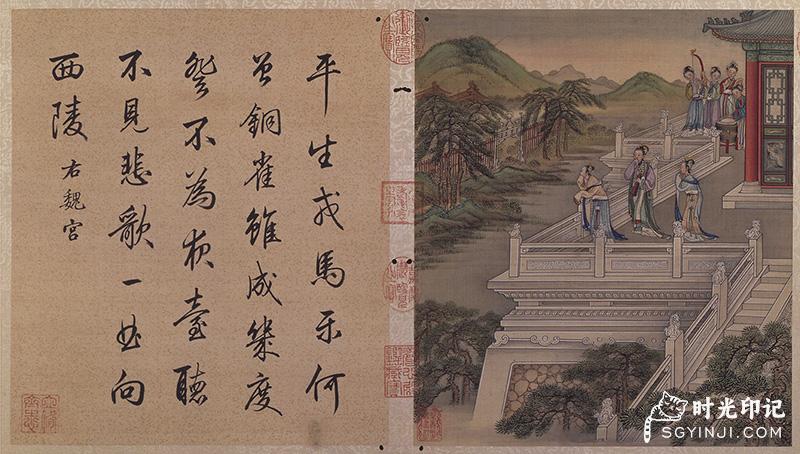 平生戎馬樂何
曾銅雀雖成幾度
登不為夜臺聽
不見悲歌一曲向
西陵 右魏宮
时光印记
SGYINJI.COM